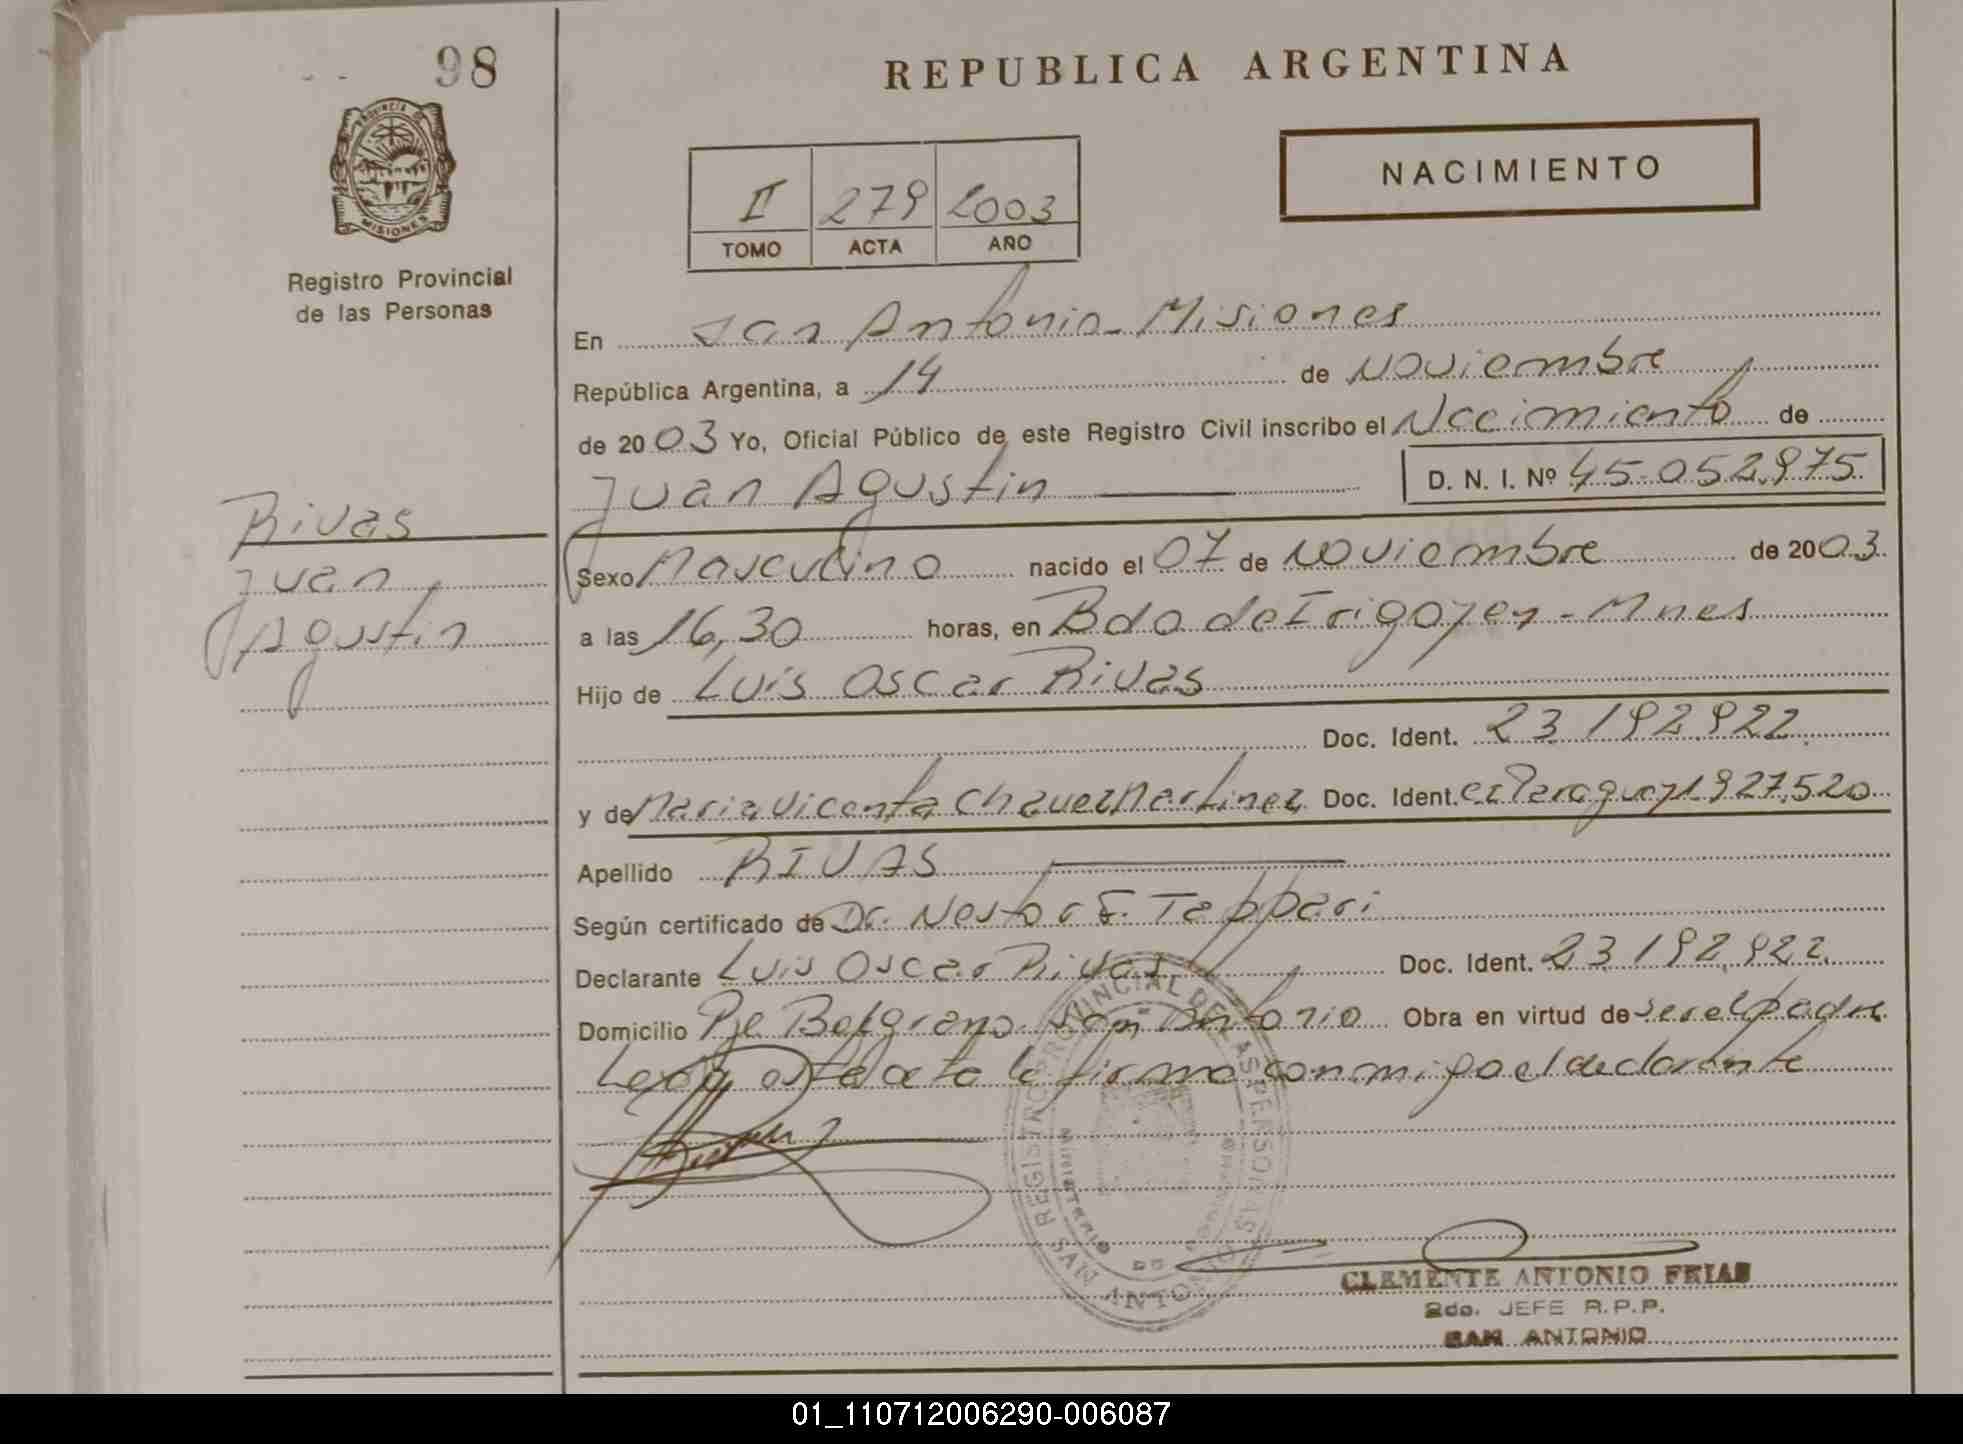 98
REPUBLICA ARGENTINA
PROVINCIA DE
MISIONES
NACIMIENTO
II 279 2003
TOMO ACTA AÑO
Registro Provincial
de las Personas
En San Antonio - Misiones
República Argentina, a 14 de Noviembre
de 2003 Yo, Oficial Público de este Registro Civil inscribo el Nacimiento de
Juan Agustin D. N. I. Nº 45.052.975
Rivas
Juan
Agustin
Sexo Masculino nacido el 07 de Noviembre de 2003
a las 16,30 horas, en Bdo de Irigoyen - Mnes
Hijo de Luis Oscar Rivas
Doc. Ident. 23.192.922
y de Maria Vicenta Chavez Martinez Doc. Ident. Paraguay 1.927.520
Apellido RIVAS
Según certificado de Dr. Nestor E. Tappari
Declarante Luis Oscar Rivas Doc. Ident. 23.192.922
Domicilio Pje Belgrano San Antonio Obra en virtud de ser el padre
Leida esta acta la firma conmigo el declarante
REGISTRO PROVINCIAL DE LAS PERSONAS
Ministerio de Gobierno
SAN ANTONIO
CLEMENTE ANTONIO FRIAS
2do. JEFE R.P.P.
SAN ANTONIO
01_110712006290-006087